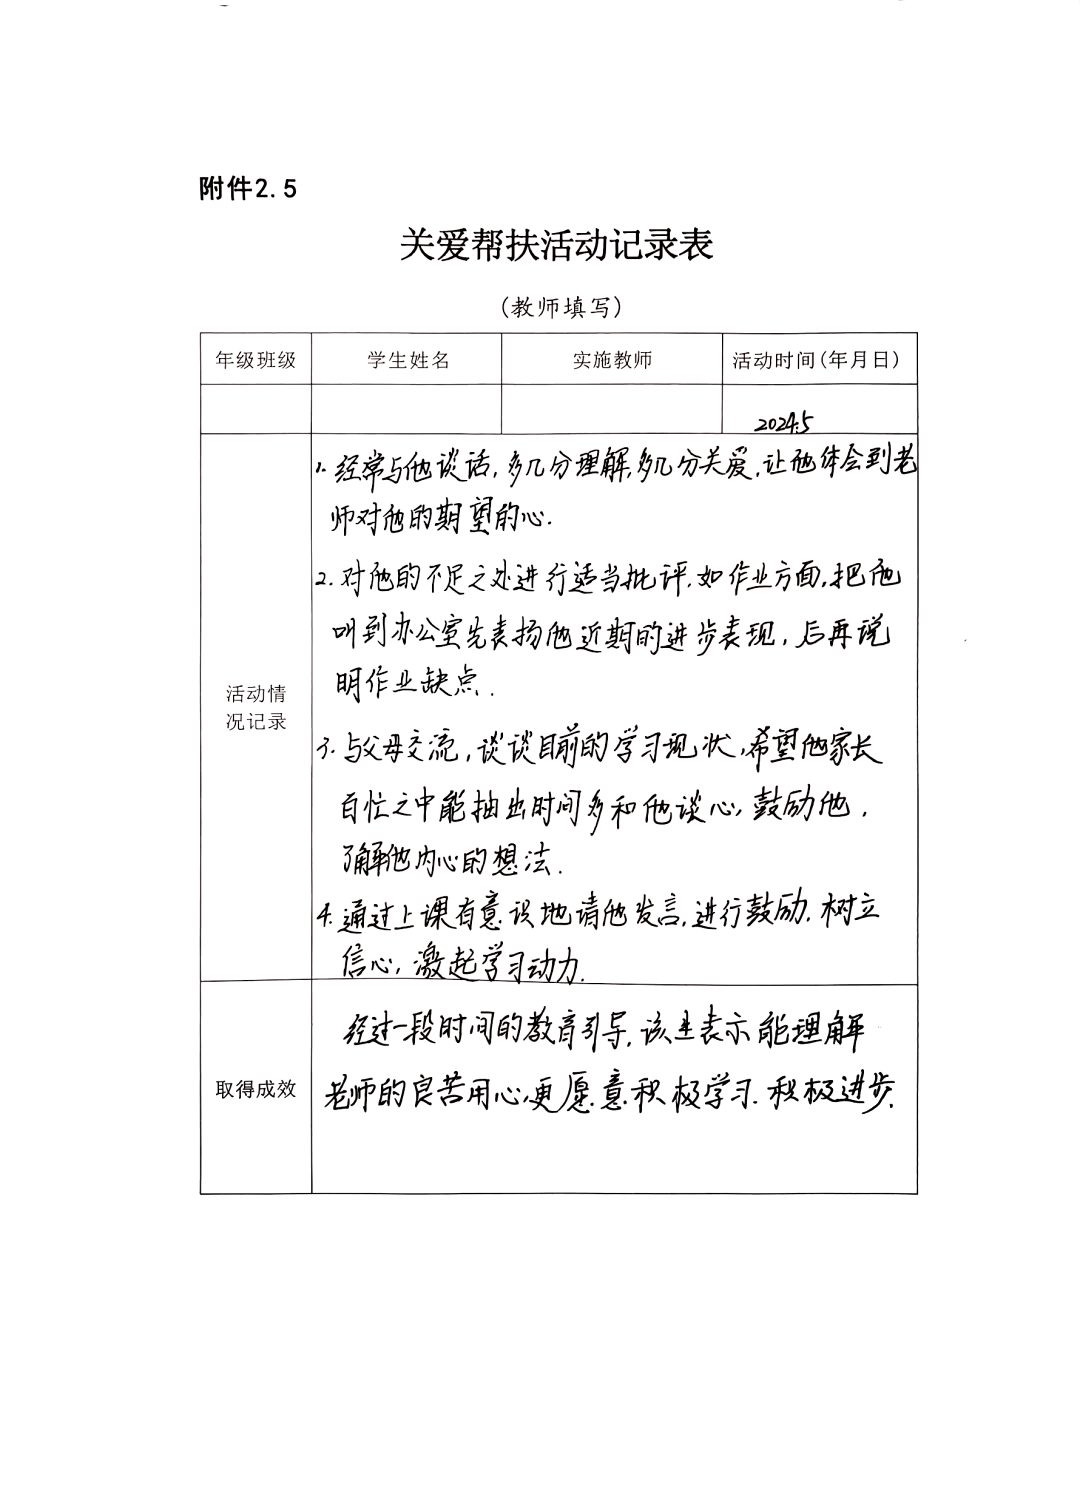 附件2.5
关爱帮扶活动记录表
(教师填写)
年级班级 学生姓名 实施教师 活动时间(年月日)
2024.5
活动情况记录
1. 经常与他谈话,多几分理解,多几分关爱,让他体会到老
师对他的期望的心.
2. 对他的不足之处进行适当批评.如作业方面,把他
叫到办公室先表扬他近期的进步表现,后再说
明作业缺点.
3. 与父母交流,谈谈目前的学习现状,希望他家长
百忙之中能抽出时间多和他谈心,鼓励他,
了解他内心的想法.
4. 通过上课有意识地请他发言,进行鼓励.树立
信心,激起学习动力.
取得成效
经过一段时间的教育引导,该生表示能理解
老师的良苦用心,更愿意积极学习.积极进步.